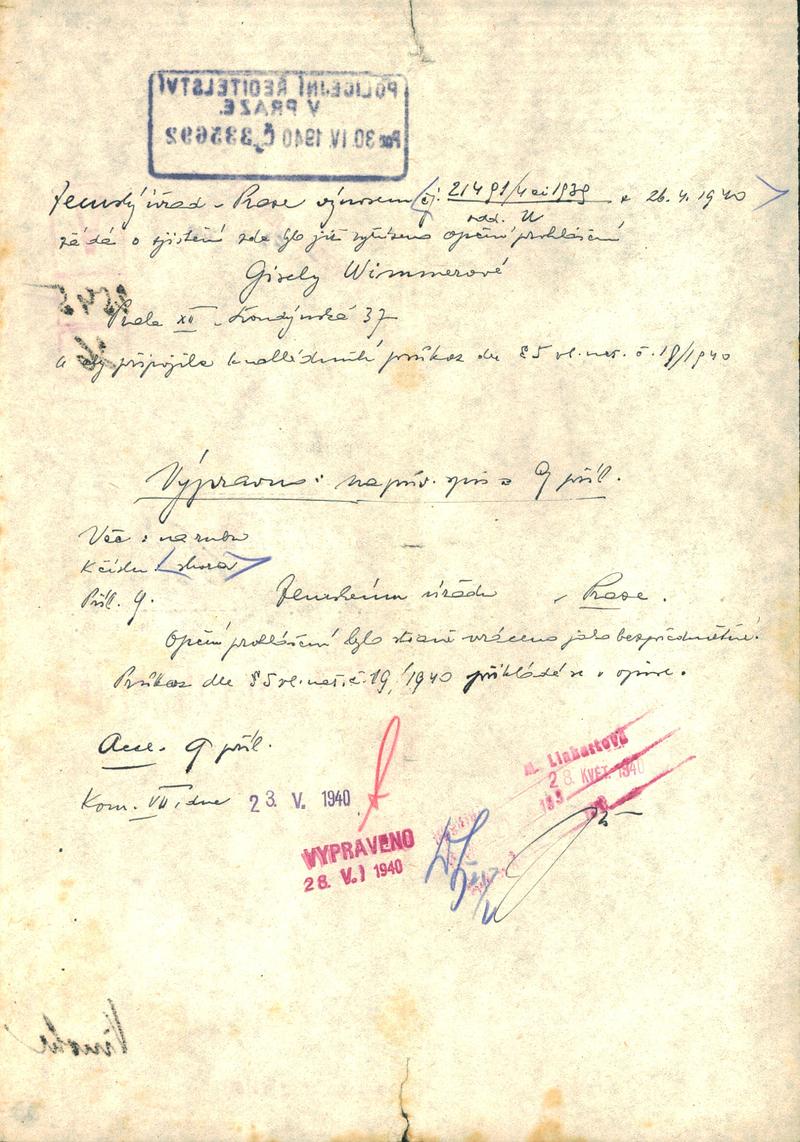 POLICEJNÍ ŘEDITELSTVÍ
V PRAZE.
30.IV.1940 Č 335692
Zemský úřad v Praze výnosem čj. 21491/4 ai 1939 z 26.4.1940
odd.
žádá o zjištění zde bylo již vyřízeno opční prohlášení
Gisely Wimmerové
Praha XII Londýnská 37
a aby připojila k nahlédnutí průkaz dle §5 vl. nař. č. 19/1940
Výpravna: na prův. spis s 9 příl.
Věc: na rubu
K číslu: shora
Příl. 9. Zemskému úřadu v Praze.
Opční prohlášení bylo straně vráceno jako bezpředmětné.
Průkaz dle §5 vl. nař. č. 19/1940 přikládá se v opise.
Acc. 9 příl.
Kom. VII, dne 23. V. 1940
M. Linhartová
28. KVĚT. 1940
VYPRAVENO
28. V. 1940